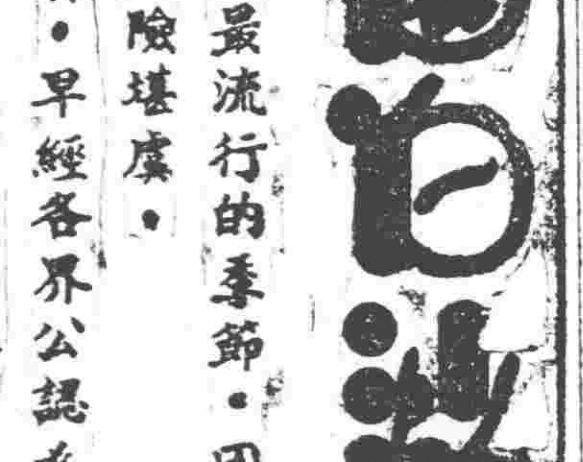 白
最流行的季節・
險堪虞・
・早經各界公認